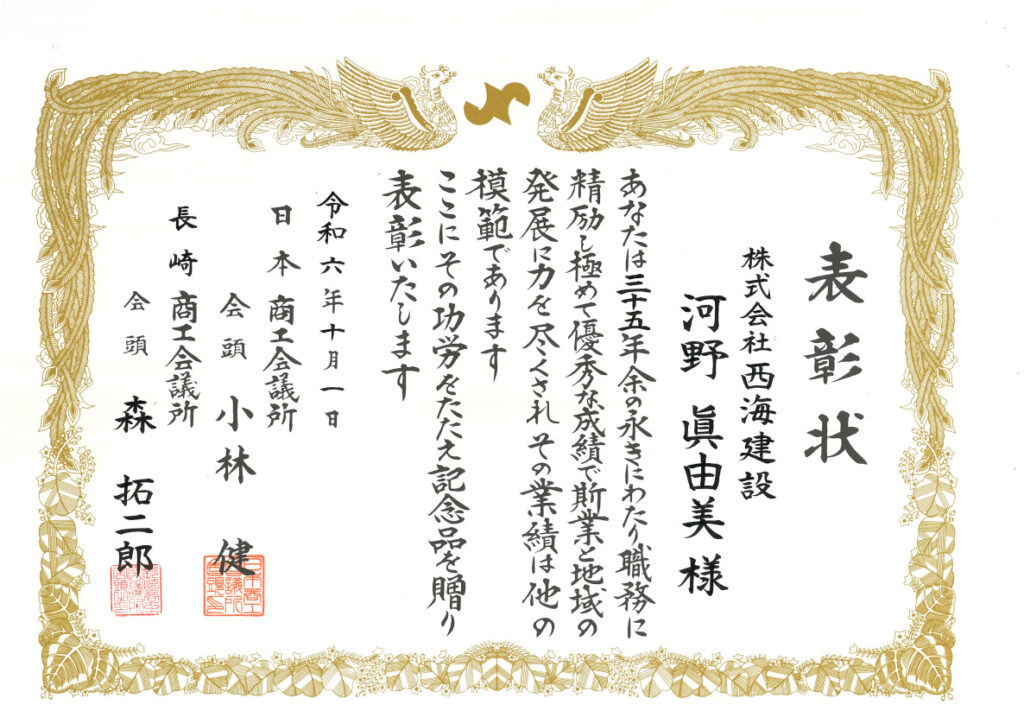 表彰状
株式会社西海建設
河野 眞由美 様
あなたは三十五年余の永きにわたり職務に
精励し極めて優秀な成績で斯業と地域の
発展に力を尽くされその業績は他の
模範であります
ここにその功労をたたえ記念品を贈り
表彰いたします
令和六年十月一日
日本商工会議所
会頭 小林 健
長崎商工会議所
会頭 森 拓二郎